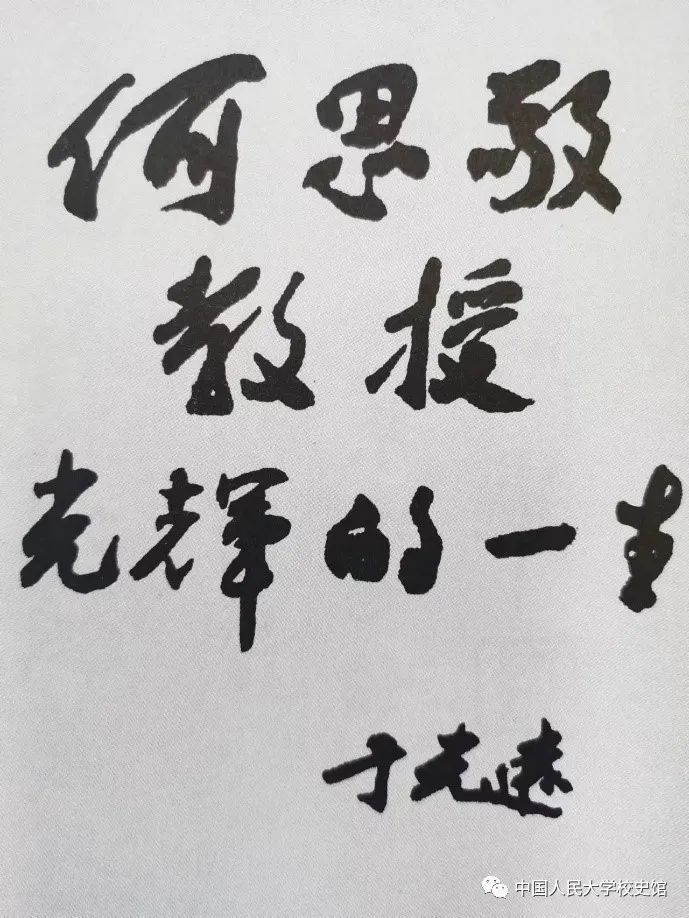 何思敬
教授
光辉的一生
于光远
中国人民大学校史馆